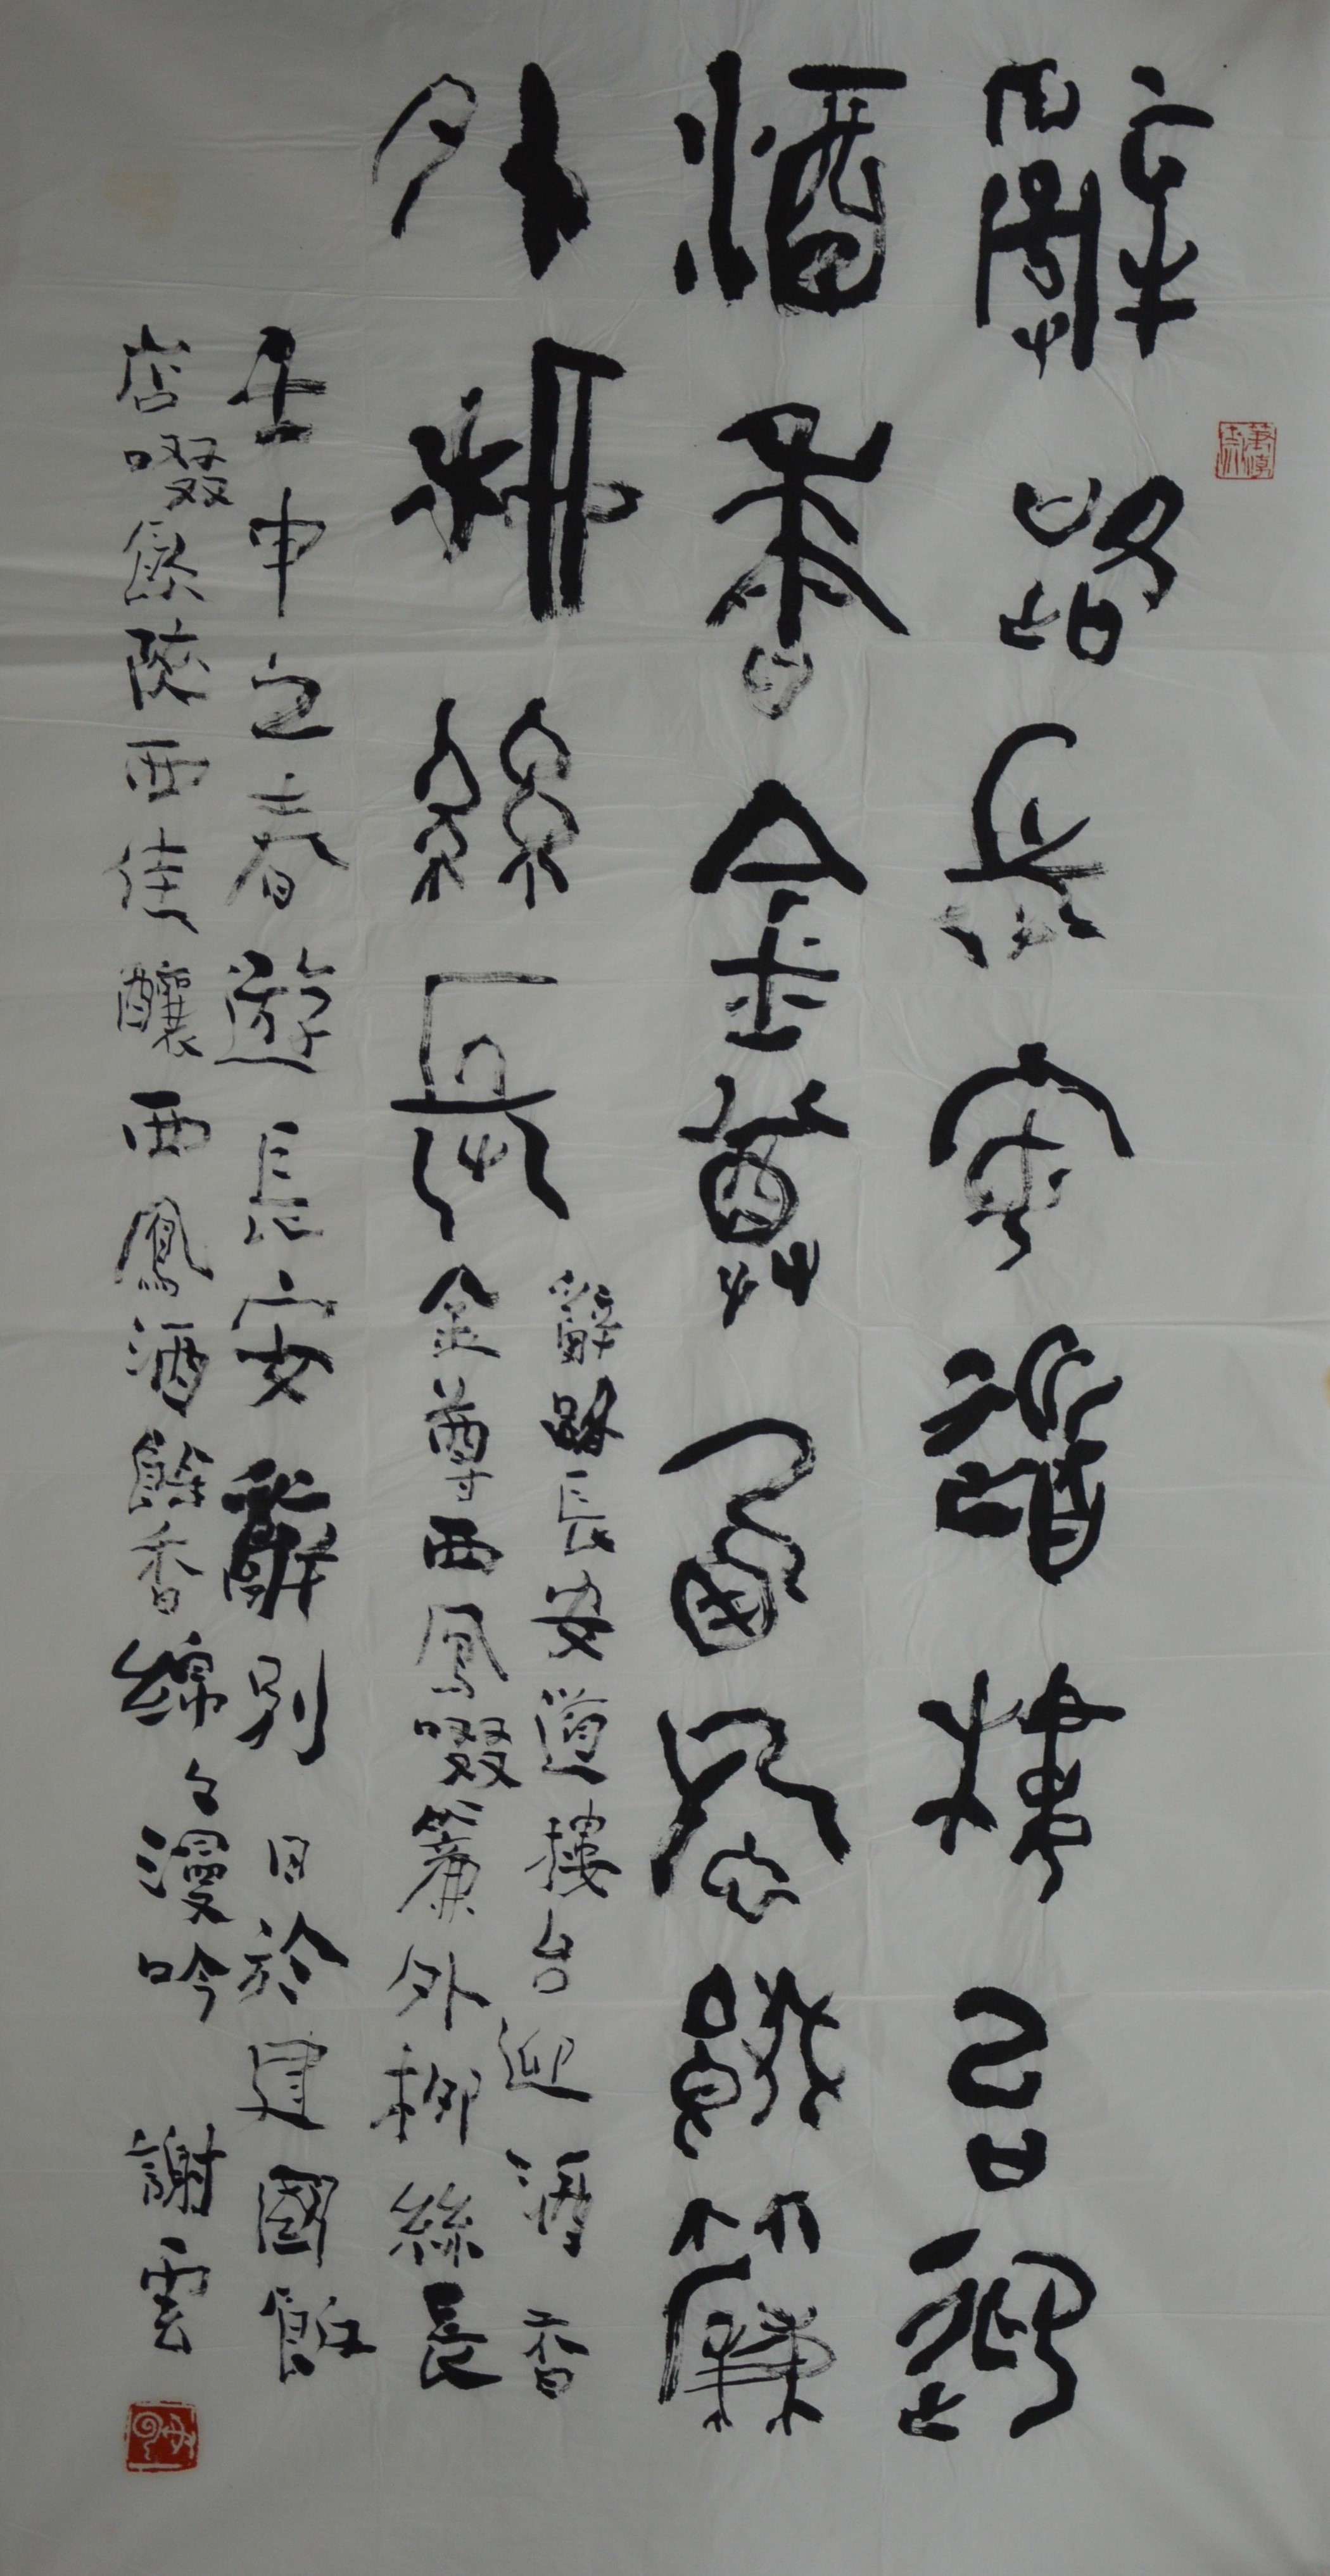 辭路長安道樓台迎
酒香金尊西鳳啜簾
外柳絲長
辭路長安道樓台迎酒香
金尊西鳳啜簾外柳絲長
壬申之春遊長安辭別日於建國飯
店啜陝西佳釀西鳳酒餘香綿々漫吟 謝雲